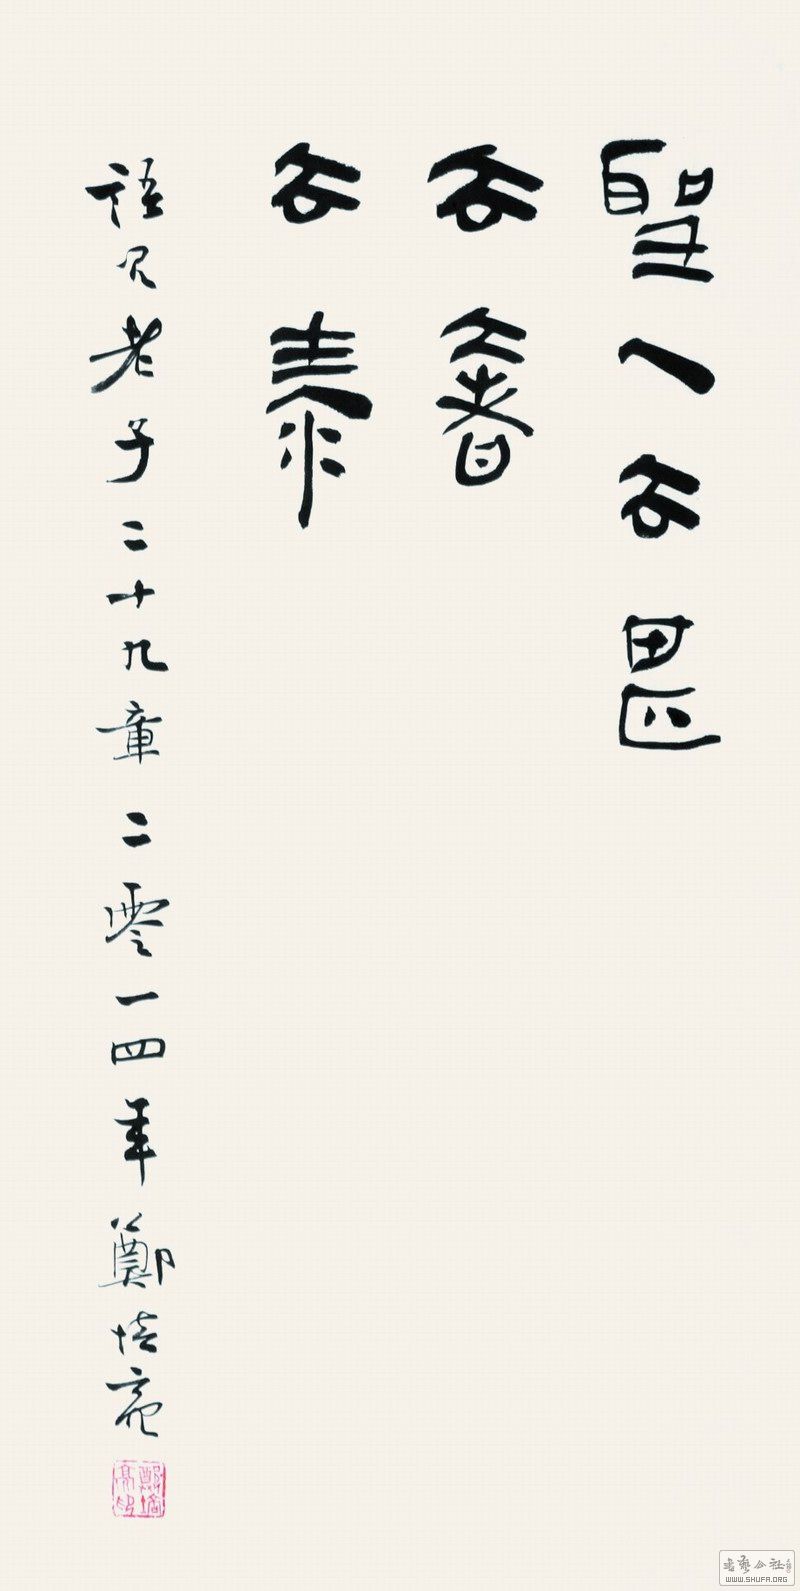 聖人去甚
去奢
去泰
語見老子二十九章二零一四年鄭培亮
鄭培亮印
書藝公社
WWW.SHUFA.ORG